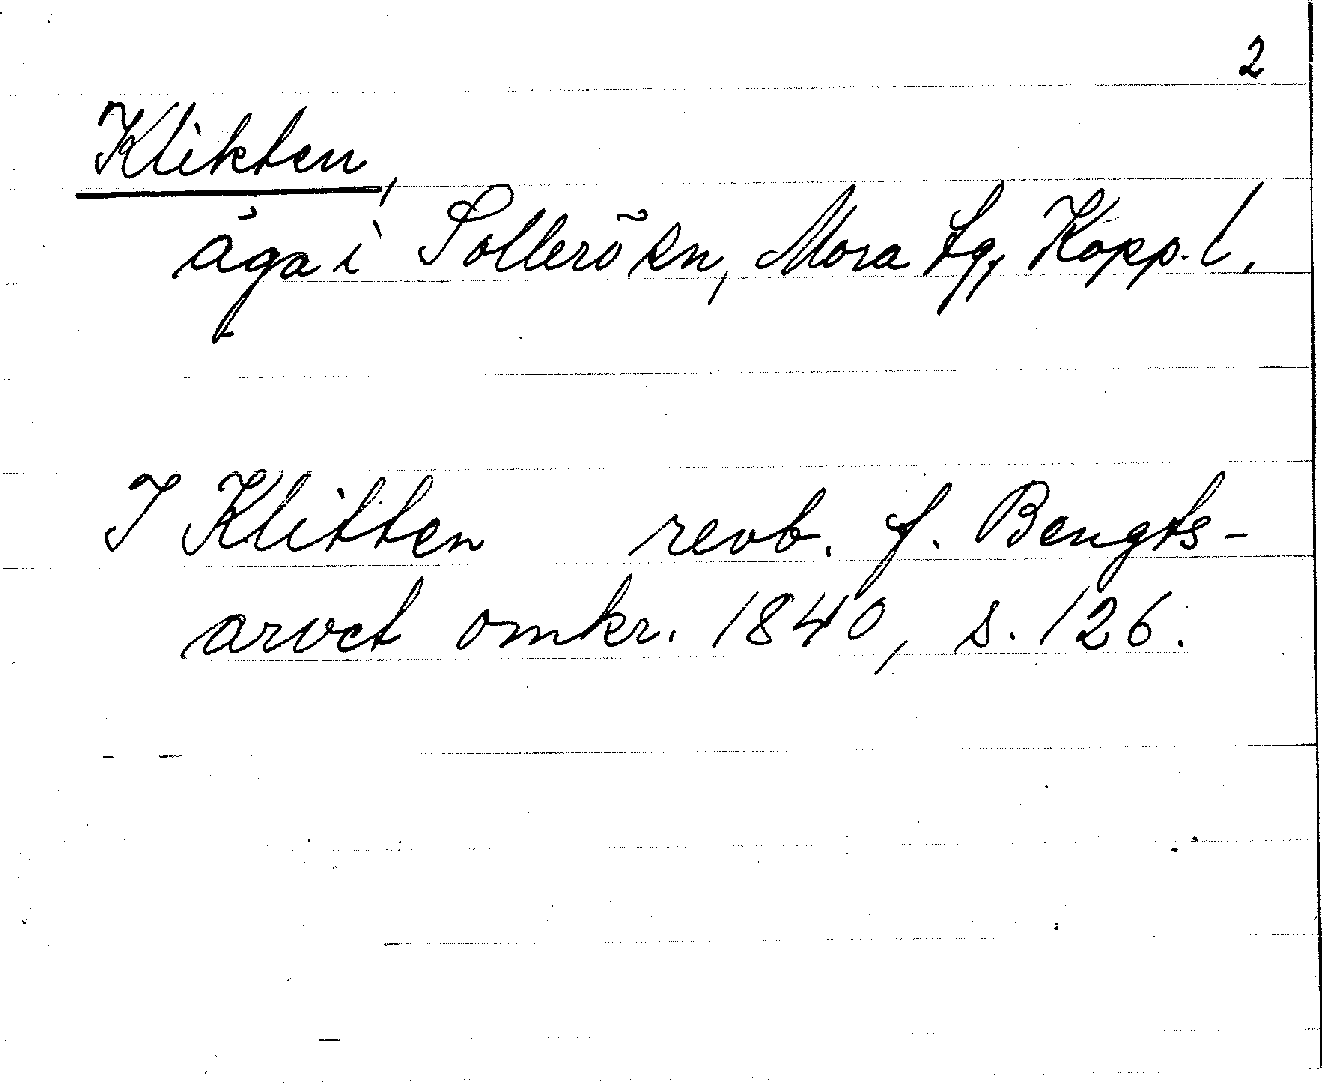 2
Klikten,
äga i Sollerö sn, Mora tg, Kopp. l.
I Klitten revb. f. Bengts-
arvet omkr. 1840, s. 126.